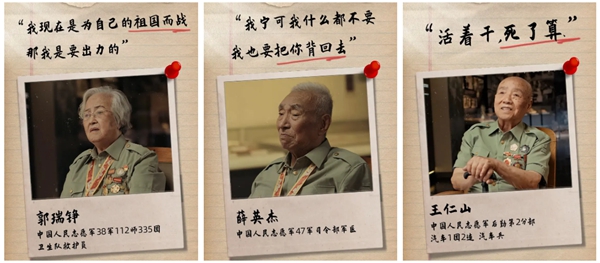 “我现在是为自己的祖国而战
那我是要出力的”
郭瑞铮
中国人民志愿军38军112师335团
卫生队救护员
“我宁可我什么都不要
我也要把你背回去”
薛英杰
中国人民志愿军47军司令部军医
“活着干，死了算.”
王仁山
中国人民志愿军后勤第2分部
汽车1团2连 汽车兵